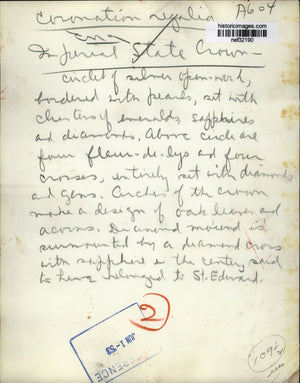 Coronation regalia A604
historicimages.com
nef32190
Imperial State Crown -
circlet of silver open-work,
bordered with pearls, set with
clusters of emeralds, sapphires
and diamonds. Above circle are
four fleur-de-lys and four
crosses, entirely set with diamonds
and gems. Arches of the crown
make a design of oak leaves and
acorns. Diamond mound is
surmounted by a diamond cross
with sapphire in the center, said
to have belonged to St. Edward.
2
JUN 1 - '53
RENCE
109